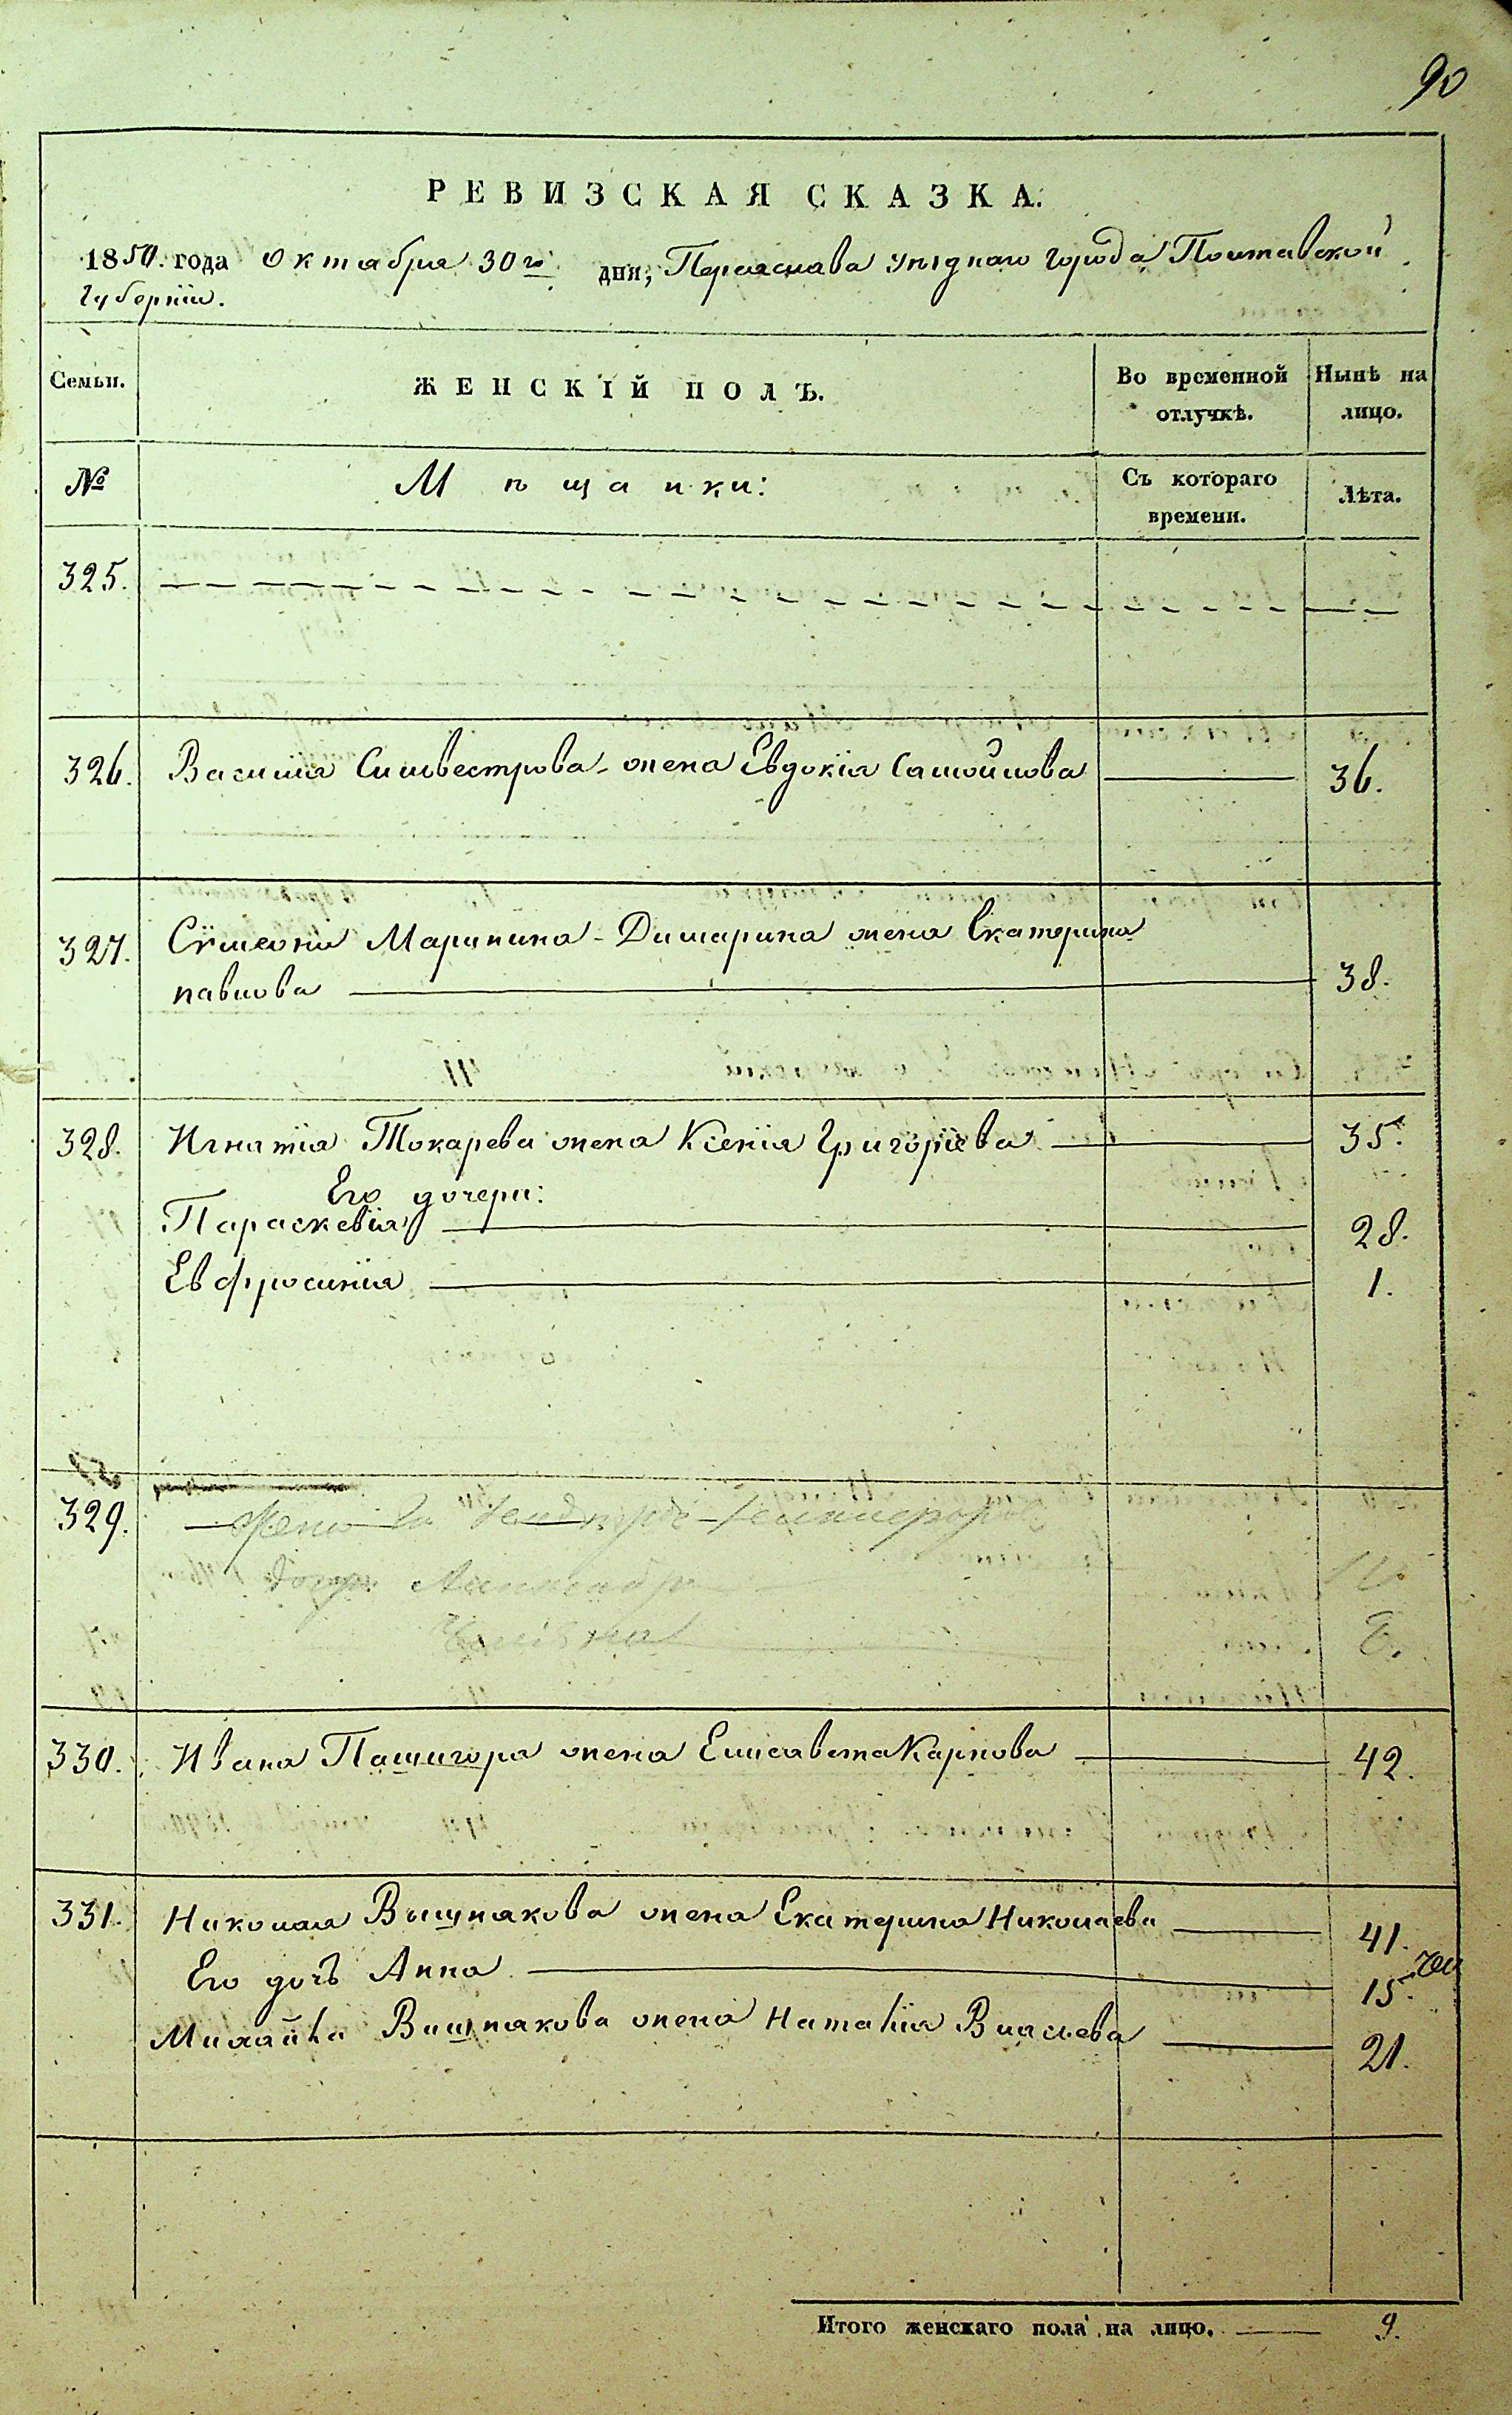 90
РЕВИЗСКАЯ СКАЗКА.
1850. года Октября 30го дня, Переяслава уѣзднаго города Полтавской
Губерніи.
Семьи. ЖЕНСКІЙ ПОЛЪ. Во временной отлучкѣ. Нынѣ на лицо.
№ Мѣщанки: Съ котораго времени. Лѣта.
325.
326. Василія Сильвестрова жена Евдокія Самойлова 36.
327. Сѵмеона Маринина - Димарина жена Екатерина
павлова 38.
328. Игнатія Токарева жена Ксенія Григоріева 35.
Его дочери:
Параскевія 28.
Евфросинія 1.
329.
330. Ивана Пашигора жена Елисавета Карпова 42.
331. Николая Вишнякова жена Екатерина Николаева 41.
Его дочь Анна 15.
Михайла Вишнякова жена Наталія Власьева 21.
Итого женскаго пола на лицо. 9.